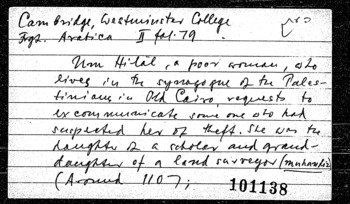 Cambridge, Westminster College
Frgt. Arabica II fol. 79
Um Hilal, a poor woman, who
lives in the synagogue of the Pales-
tinians in Old Cairo, requests to
excommunicate some one who had
suspected her of theft. She was the
daughter of a scholar and grand-
daughter of a land surveyor
(Around 1107;
101138